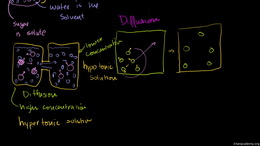 water is the
solvent
sugar
is solute
Diffusion
lower concentration
hypotonic
solution
Diffusion
high concentration
hypertonic solution
khanacademy.org